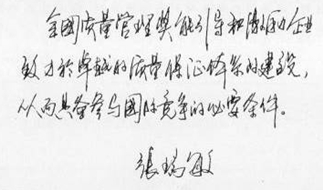 全国质量管理奖能引导和激励企业
致力於卓越的质量保证体系的建设,
从而具备参与国际竞争的必要条件。
張瑞敏